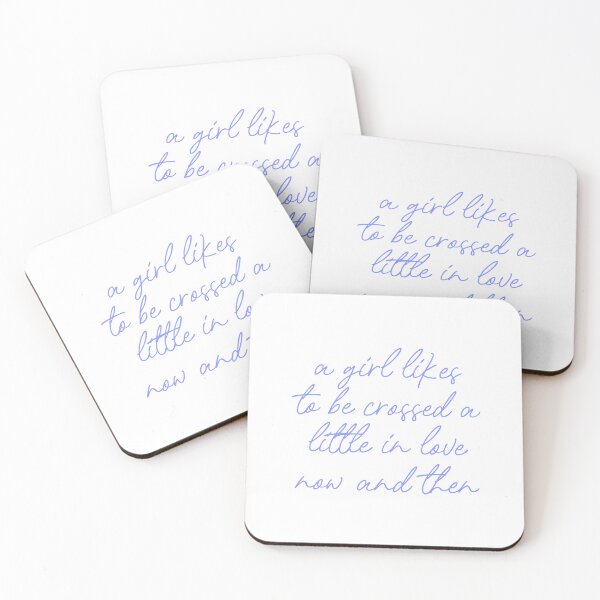 a girl likes
to be crossed a
love
a girl likes
to be crossed a
little in love
a girl likes
to be crossed a
little in lo
now and t
a girl likes
to be crossed a
little in love
now and then